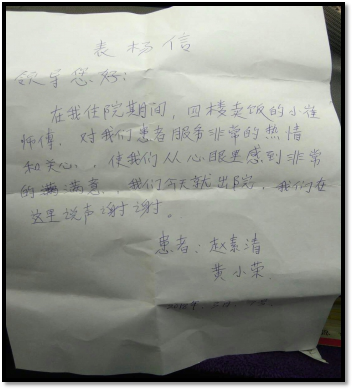 表扬信
领导您好:
在我住院期间,四楼卖饭的小崔
师傅,对我们患者服务非常的热情
和关心,使我们从心眼里感到非常
的满满意,我们今天就出院,我们在
这里说声谢谢。
患者:赵素清
黄小荣